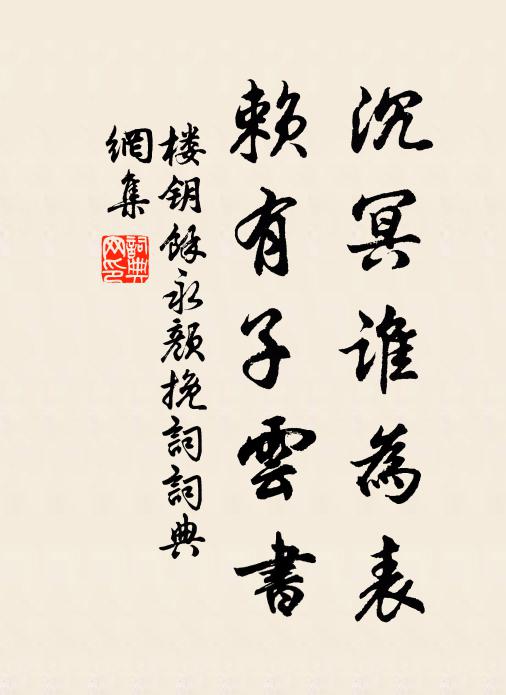 沉冥谁為表
賴有子雲書
楼钥餘永颜挽詞詞典
網集
詞典
网印